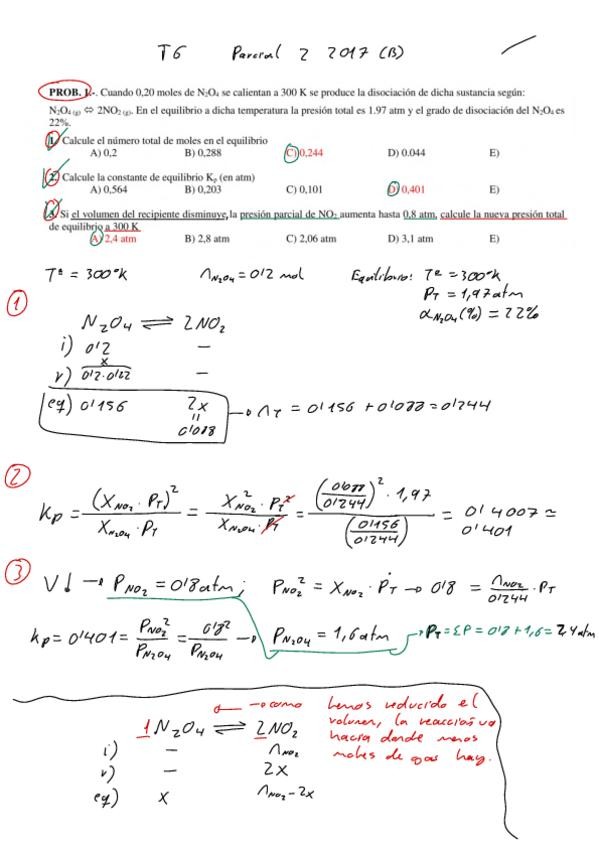 T6 Parcial 2 2017 (B)
PROB. 1.-. Cuando 0,20 moles de N₂O₄ se calientan a 300 K se produce la disociación de dicha sustancia según:
N₂O₄ (g) ⇔ 2NO₂ (g). En el equilibrio a dicha temperatura la presión total es 1.97 atm y el grado de disociación del N₂O₄ es
22%.
1. Calcule el número total de moles en el equilibrio
A) 0,2 B) 0,288 C) 0,244 D) 0.044 E)
2. Calcule la constante de equilibrio Kp (en atm)
A) 0,564 B) 0,203 C) 0,101 D) 0,401 E)
3. Si el volumen del recipiente disminuye, la presión parcial de NO₂ aumenta hasta 0,8 atm, calcule la nueva presión total
de equilibrio a 300 K
A) 2,4 atm B) 2,8 atm C) 2,06 atm D) 3,1 atm E)
Tª = 300°K n N₂O₄ = 0'2 mol Equilibrio: Tª = 300°K
P_T = 1,97 atm
α N₂O₄ (%) = 22%
1
N₂O₄ ⇌ 2NO₂
i) 0'2 —
x
r) 0'2·0'22 —
eq) 0'156 2x → n_T = 0'156 + 0'088 = 0'244
=
0'088
2
Kp = (X_NO₂ · P_T)² / X_N₂O₄ · P_T = X²_NO₂ · P_T² / X_N₂O₄ · P_T = (0'088/0'244)² · 1,97 / (0'156/0'244) = 0'4007 ≃
0'401
3
V↓ → P_NO₂ = 0'8 atm; P_NO₂² = X_NO₂ · P_T → 0'8 = n_NO₂/0'244 · P_T
Kp = 0'401 = P²_NO₂ / P_N₂O₄ = 0'8² / P_N₂O₄ → P_N₂O₄ = 1,6 atm → P_T = ΣP = 0'8 + 1,6 = 2,4 atm
← → como hemos reducido el
1 N₂O₄ ⇌ 2NO₂ volumen, la reacción va
i) — n_NO₂ hacia donde menos
r) — 2x moles de gas hay.
eq) x n_NO₂ - 2x